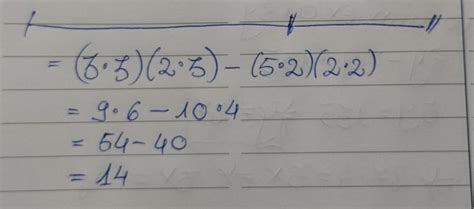 = (3·3)(2·3)-(5·2)(2·2)
= 9·6-10·4
= 54-40
= 14